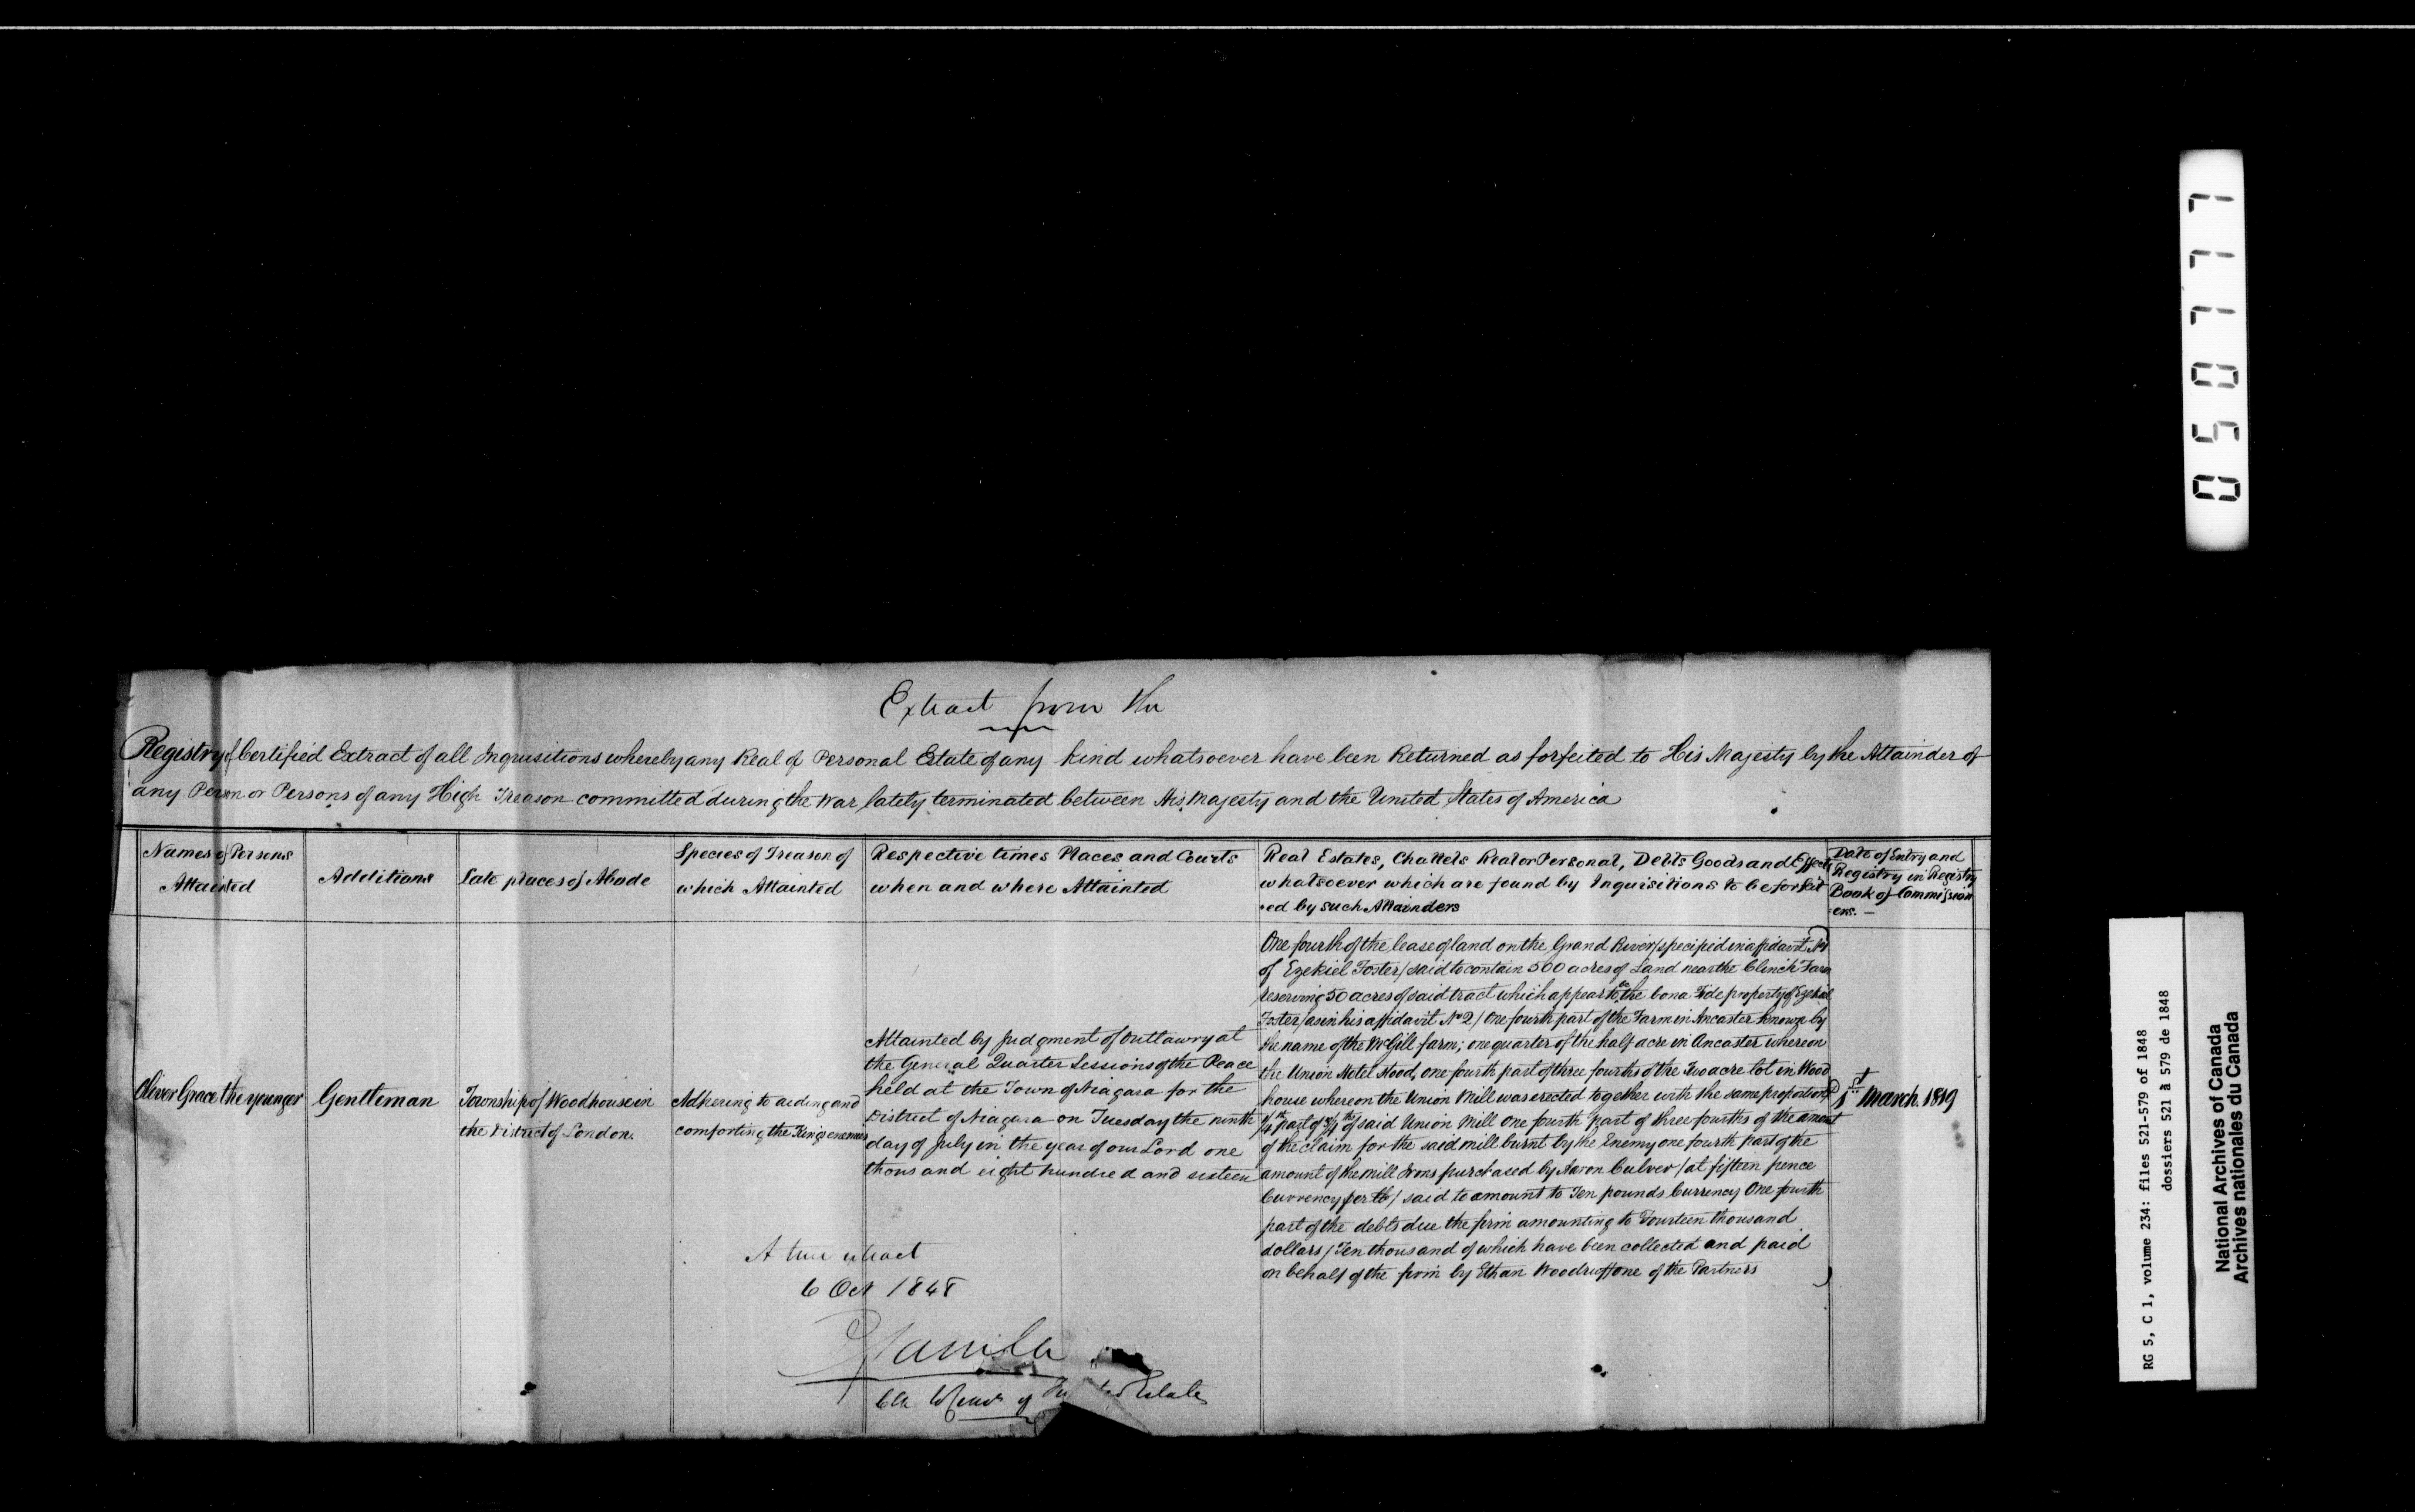 Extract from the
Registry of Certified Extract of all Inquisitions whereby any Real of Personal Estate of any kind whatsoever have been Returned as forfeited to His Majesty by the Attainder of
any Person or Persons of any High Treason committed during the War lately terminated between His Majesty and the United States of America
Names of Persons
Attainted
Additions
Late places of Abode
Species of Treason of
which Attainted
Respective times Places and Courts
when and where Attainted
Real Estates, Chattels Real or Personal, Debts Goods and Effects
whatsoever which are found by Inquisitions to be forfeit
=ed by such Attainders
Date of Entry and
Registry in Registry
Book of Commission
=ers. —
Oliver Grace the younger
Gentleman
Township of Woodhouse in
the District of London.
Adhering to aiding and
comforting the Kings enemies
Attainted by judgment of Outlawry at
the General Quarter Sessions of the Peace
held at the Town of Niagara for the
District of Niagara on Tuesday the ninth
day of July in the year of our Lord one
thousand eight hundred and sixteen
One fourth of the lease of land on the Grand River / specified in affidavit No 1
of Ezekiel Foster / said to contain 500 acres of Land near the Clinch Farm
reserving 50 acres of said tract which appear to be the bona Fide property of Ezekiel
Foster / as in his affidavit No 2 / One fourth part of the Farm in Ancaster known by
the name of the McGill farm; one quarter of the half acre in Ancaster whereon
the Union Hotel stood, one fourth part of three fourths of the Two acre lot in Wood
house whereon the Union Mill was erected together with the same proportion
1/4th part of 3/4ths of said Union Mill One fourth part of three fourths of the amount
of the claim for the said mill burnt by the Enemy one fourth part of the
amount of the mill Irons purchased by Aaron Culver / at fifteen pence
Currency per lb / said to amount to Ten pounds Currency One fourth
part of the debts due the firm amounting to Fourteen thousand
dollars / Ten thousand of which have been collected and paid
on behalf of the firm by Ethan Woodruff one of the Partners
1st March. 1819
A true extract
6 Oct 1848
Estates
0507777
RG 5, C 1, volume 234: files 521-579 of 1848
dossiers 521 à 579 de 1848
National Archives of Canada
Archives nationales du Canada